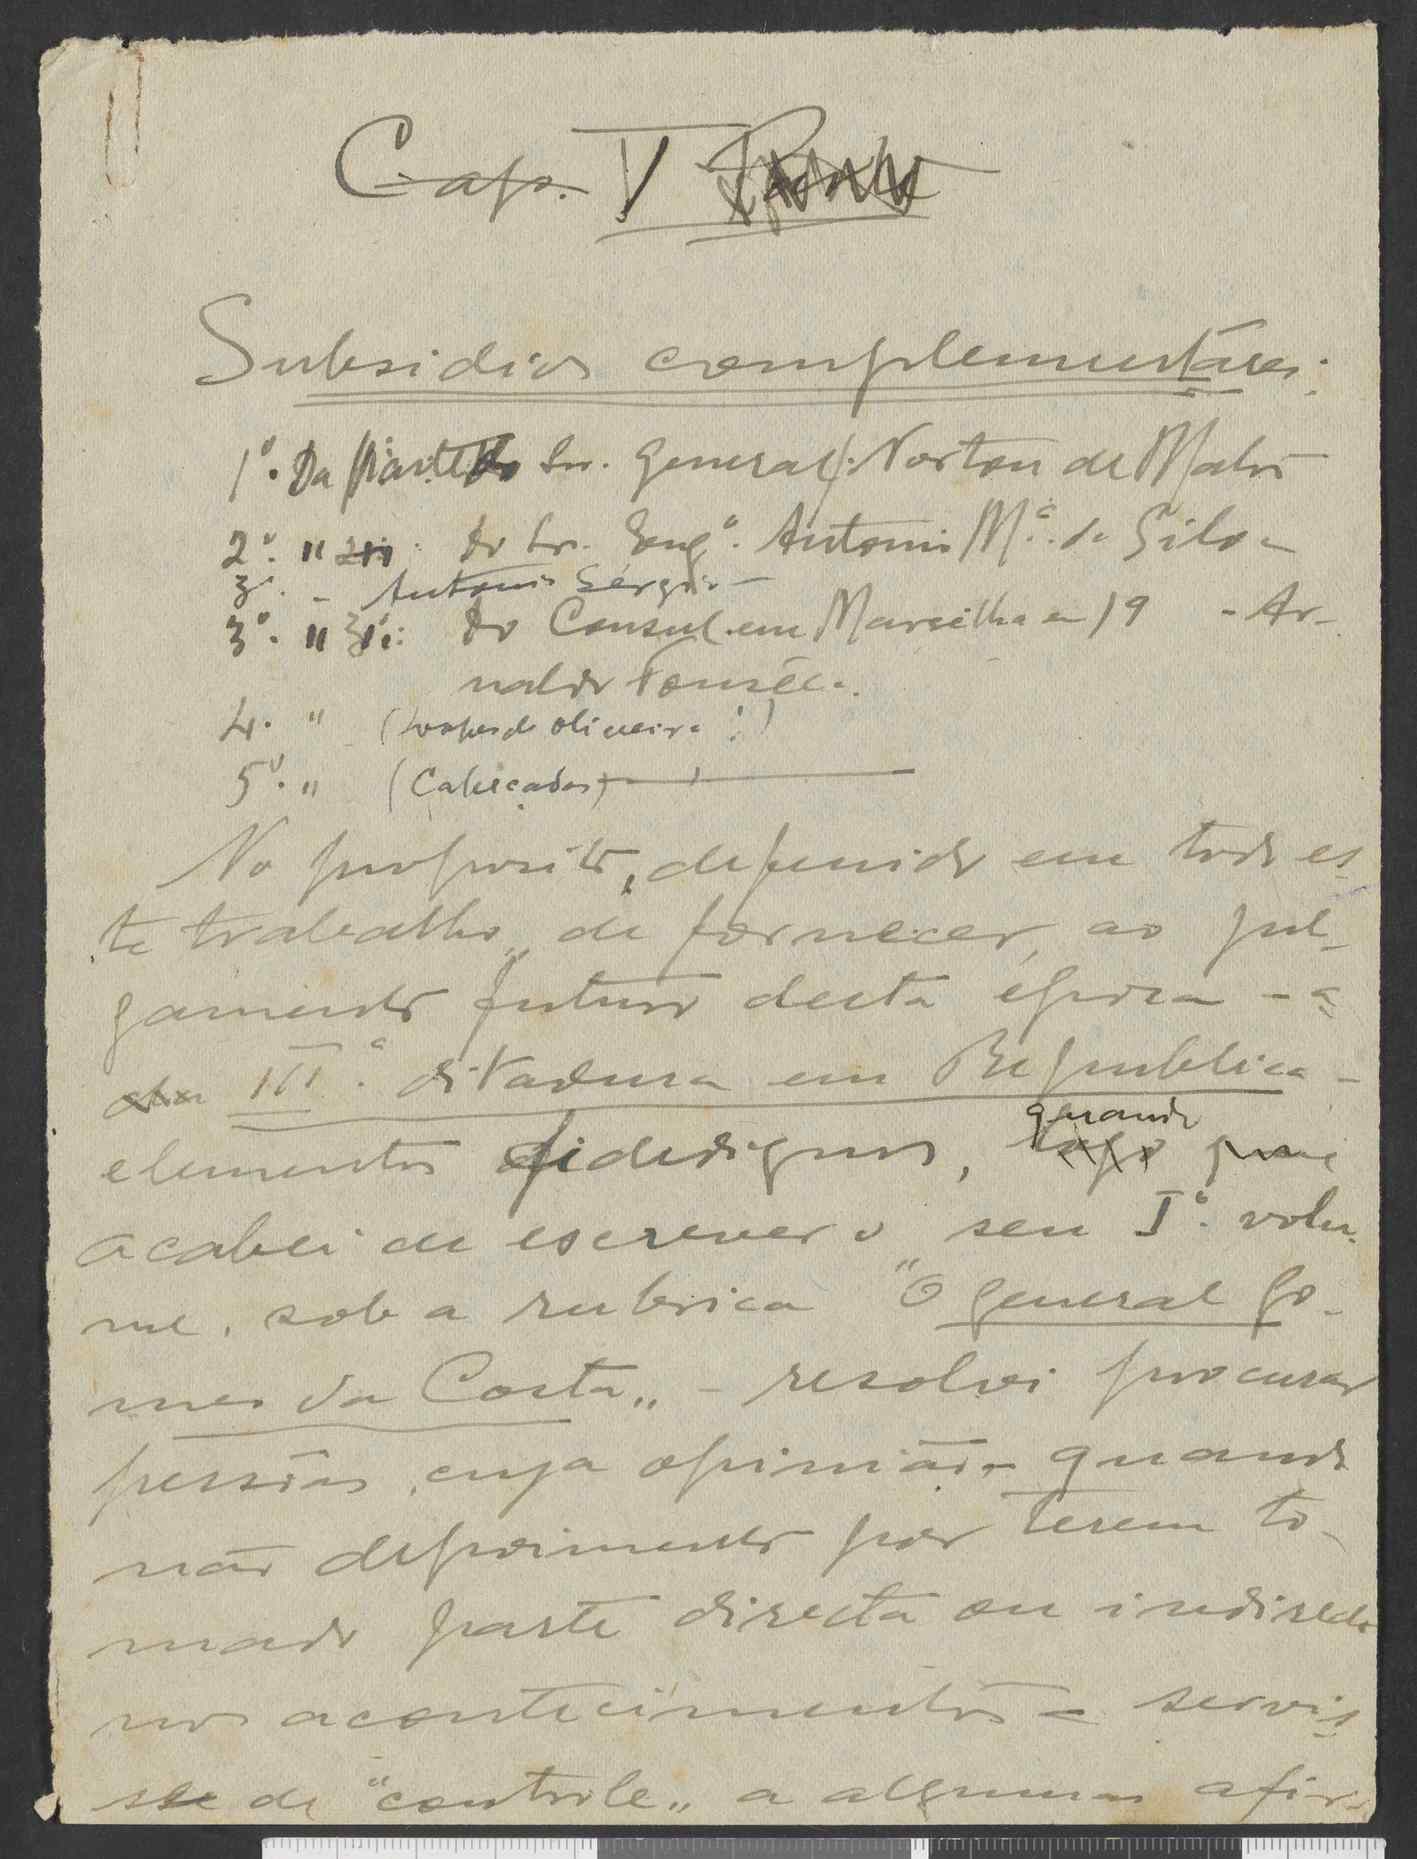 Cap. V
Subsidios complementáres:
1º. Da Parte do Snr. General Norton de Matos
2º. " do Snr. Engº. Antonio Mª. da Silva -
3º. - Antonio Sérgio -
3º. " do Consul em Marselha em 19 - Ar-
naldo Fonseca.
4. " (Lopes de Oliveira!)
5º. " (Cabeçadas)
No proposito, defenido em todo es-
te trabalho, de fornecer, ao jul-
gamento futuro desta época - a
IIIª. ditadura em Republica -
elementos fidedignos, quando
acabei de escrever o seu Iº. volu-
me, sob a rubrica "O general Go-
mes da Costa" - resolvi procurar
pessoas, cuja opinião - quando
não depoimento por terem to-
mado parte directa ou indirecta
nos acontecimentos - servis-
se de "controle" a algumas afir-